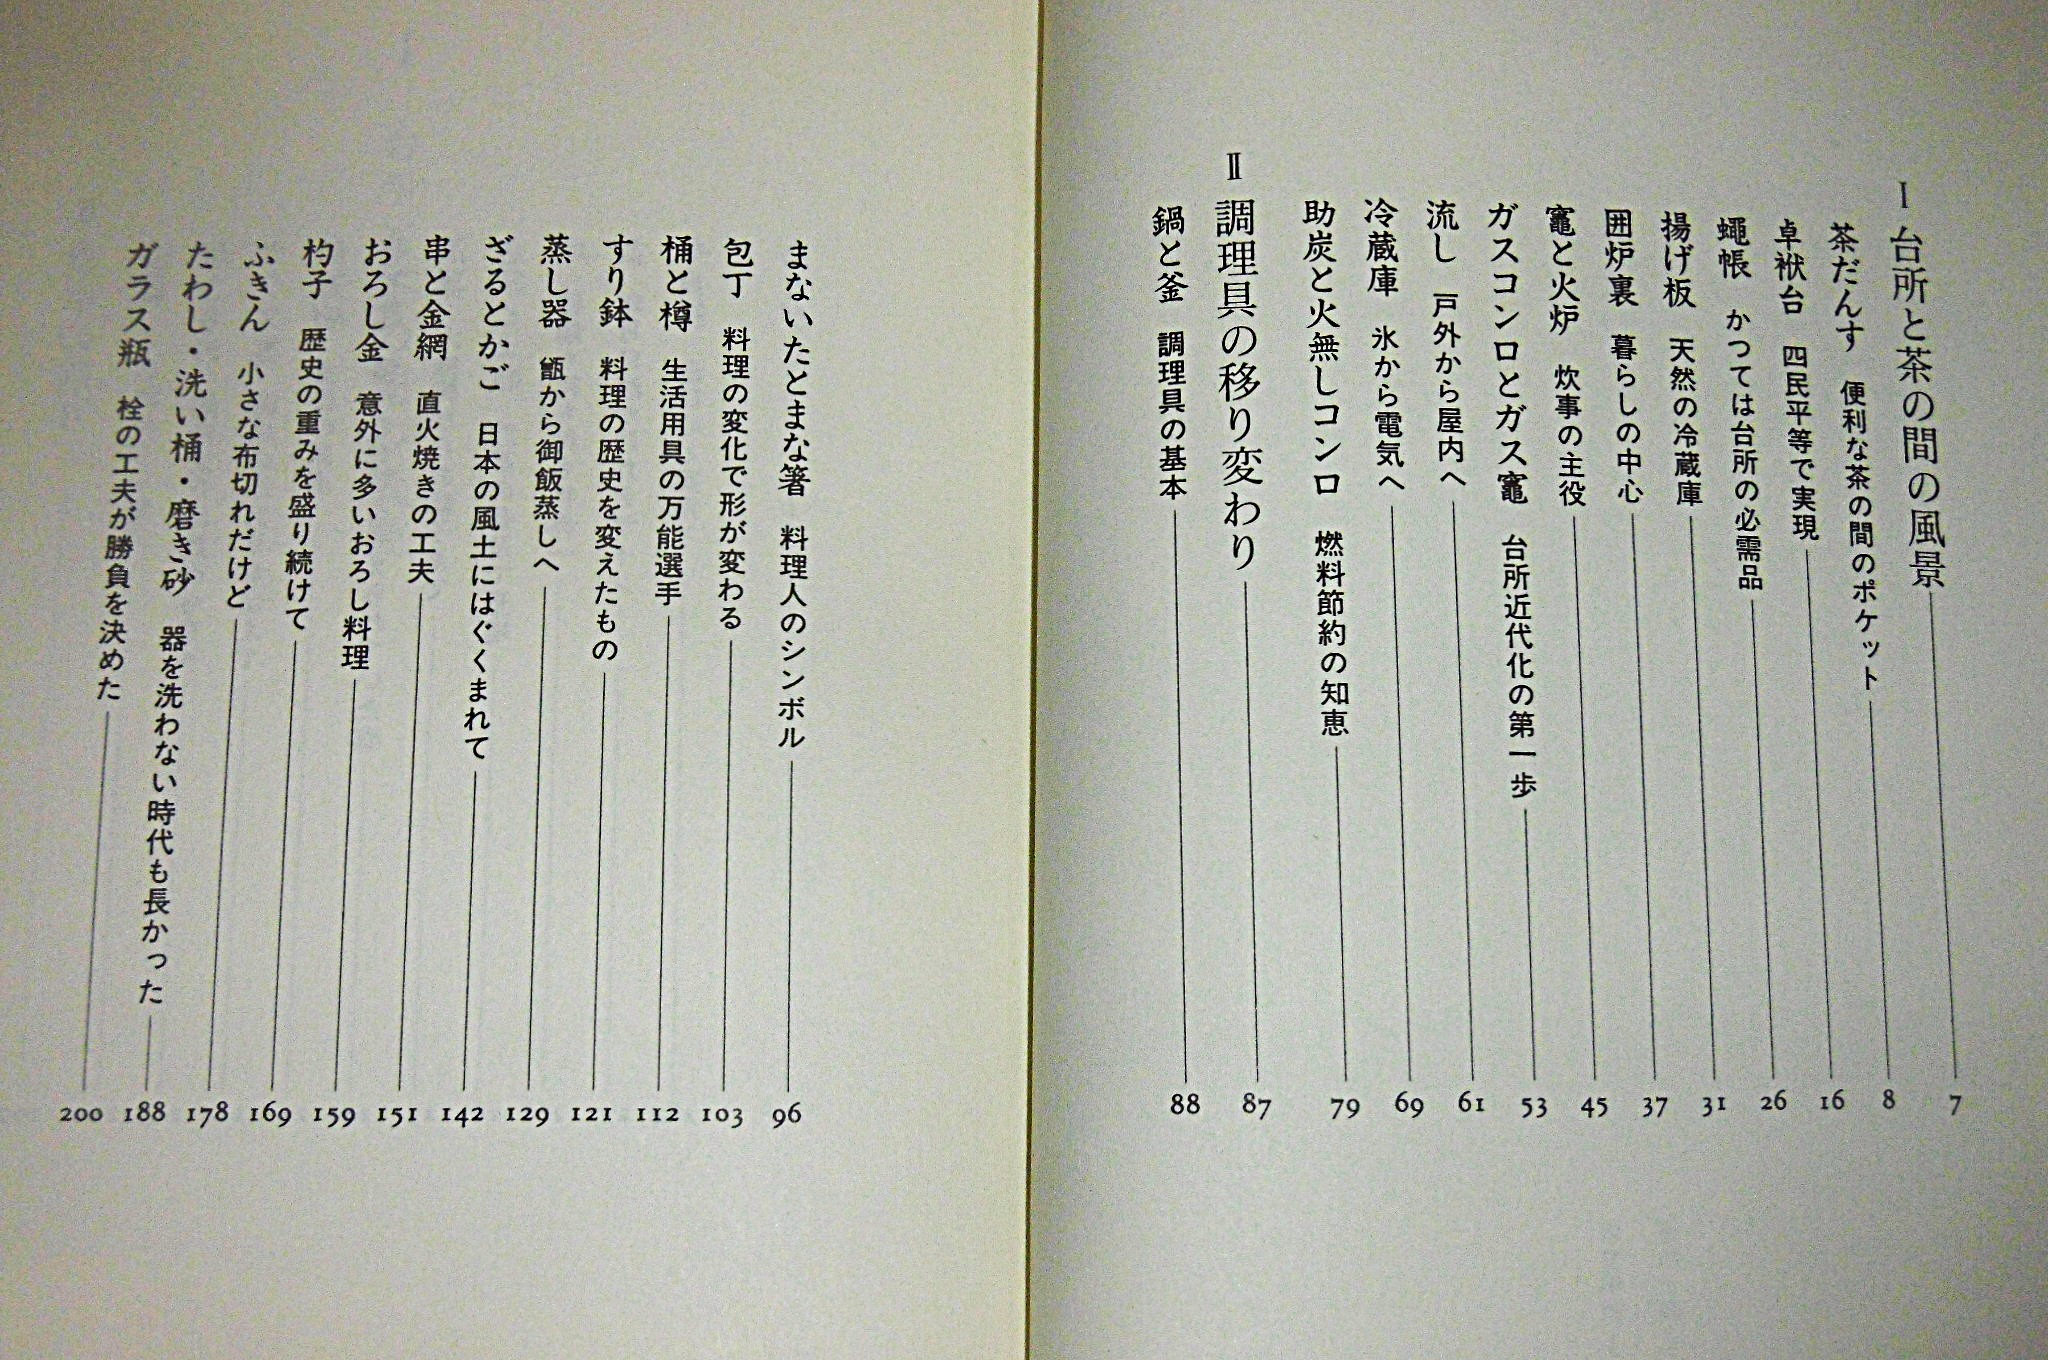 I 台所と茶の間の風景 7
茶だんす 便利な茶の間のポケット 8
卓袱台 四民平等で実現 16
蠅帳 かつては台所の必需品 26
揚げ板 天然の冷蔵庫 31
囲炉裏 暮らしの中心 37
竈と火炉 炊事の主役 45
ガスコンロとガス竈 台所近代化の第一歩 53
流し 戸外から屋内へ 61
冷蔵庫 氷から電気へ 69
助炭と火無しコンロ 燃料節約の知恵 79
II 調理具の移り変わり 87
鍋と釜 調理具の基本 88
まないたとまな箸 料理人のシンボル 96
包丁 料理の変化で形が変わる 103
桶と樽 生活用具の万能選手 112
すり鉢 料理の歴史を変えたもの 121
蒸し器 甑から御飯蒸しへ 129
ざるとかご 日本の風土にはぐくまれて 142
串と金網 直火焼きの工夫 151
おろし金 意外に多いおろし料理 159
杓子 歴史の重みを盛り続けて 169
ふきん 小さな布切れだけど 178
たわし・洗い桶・磨き砂 器を洗わない時代も長かった 188
ガラス瓶 栓の工夫が勝負を決めた 200